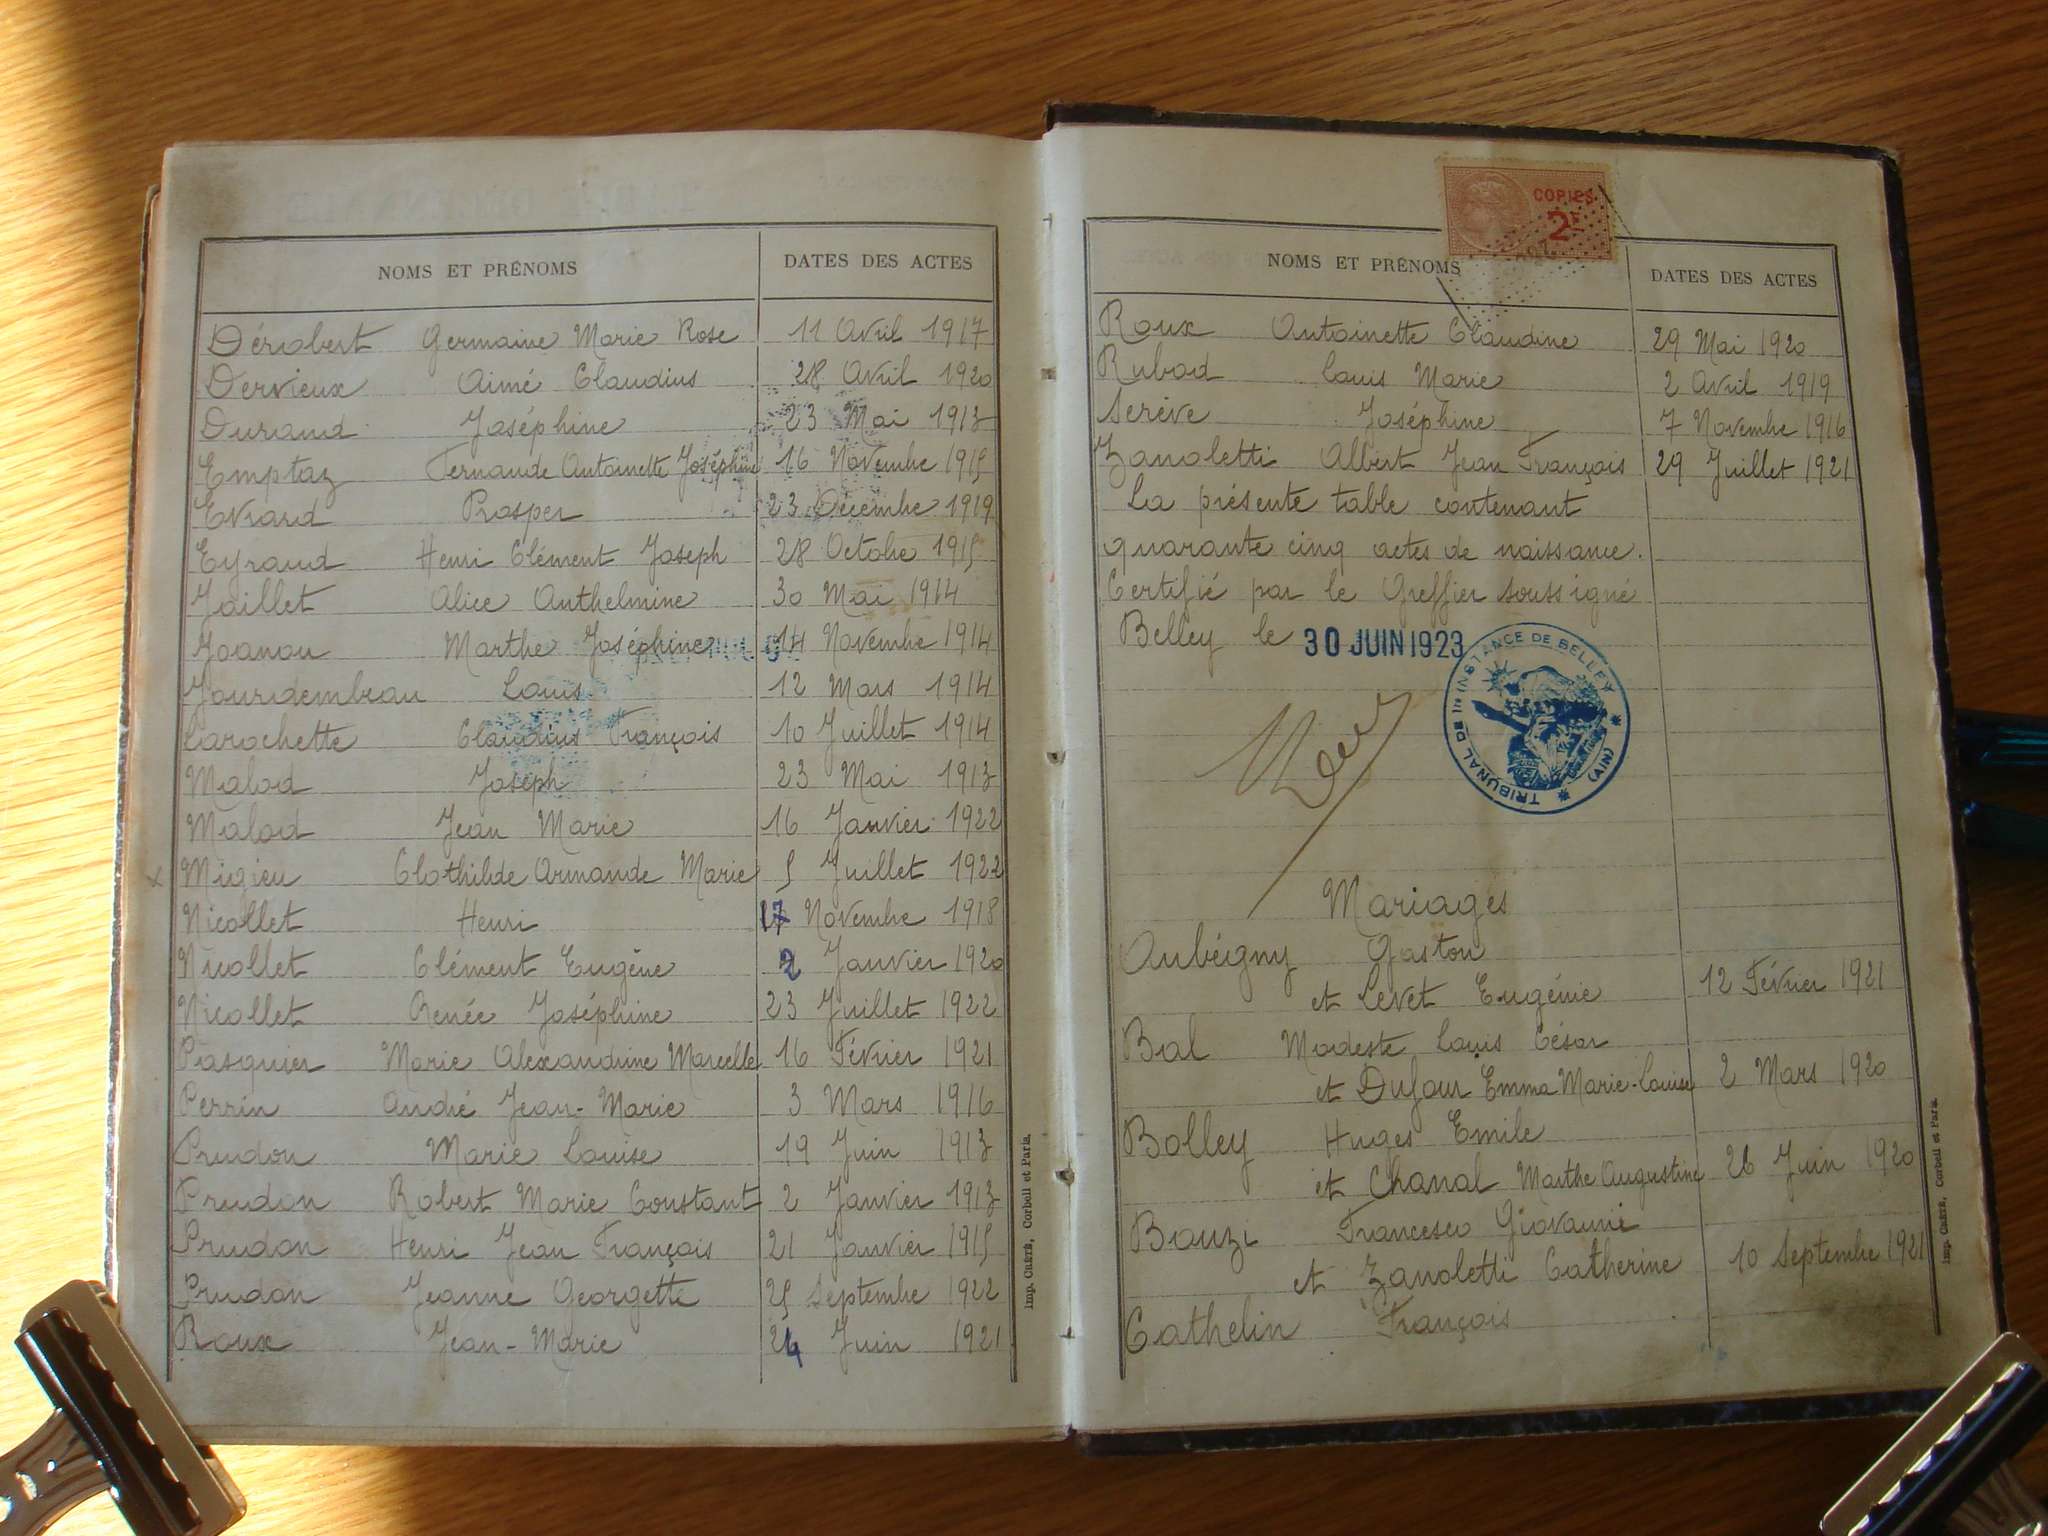 NOMS ET PRÉNOMS DATES DES ACTES
Dérobert Germaine Marie Rose 11 Avril 1917
Dervieux Aimé Claudius 28 Avril 1920
Durand Joséphine 23 Mai 1913
Emptaz Fernande Antoinette Joséphine 16 Novembre 1915
Evrard Prosper 23 Décembre 1919
Eyraud Henri Clément Joseph 28 Octobre 1915
Jaillet Alice Anthelmine 30 Mai 1914
Joanon Marthe Joséphine 14 Novembre 1914
Jourdembeau Louis 12 Mars 1914
Larochette Claudius François 10 Juillet 1914
Malod Joseph 23 Mai 1913
Malod Jean Marie 16 Janvier 1922
x Migieu Clothilde Armande Marie 5 Juillet 1922
Nicollet Henri 17 Novembre 1918
Nicollet Clément Eugène 2 Janvier 1920
Nicollet Renée Joséphine 23 Juillet 1922
Pasquier Marie Alexandrine Marcelle 16 Février 1921
Perrin André Jean-Marie 3 Mars 1916
Prudon Marie Louise 19 Juin 1913
Prudon Robert Marie Constant 2 Janvier 1913
Prudon Henri Jean François 21 Janvier 1915
Prudon Jeanne Georgette 25 Septembre 1922
Roux Jean-Marie 24 Juin 1921
Imp. CRÉTÉ, Corbeil et Paris.
COPIES
2F
NOMS ET PRÉNOMS DATES DES ACTES
Roux Antoinette Claudine 29 Mai 1920
Rubod Louis Marie 2 Avril 1919
Serève Joséphine 7 Novembre 1916
Zanoletti Albert Jean François 29 Juillet 1921
La présente table contenant
quarante cinq actes de naissance.
Certifié par le Greffier soussigné
Belley le 30 JUIN 1923
TRIBUNAL DE 1re INSTANCE DE BELLEY * (AIN) *
Mariages
Aubéigny Gaston
et Levet Eugénie 12 Février 1921
Bal Modeste Louis César
et Dufour Emma Marie-Louise 2 Mars 1920
Bolley Huges Emile
et Chanal Marthe Augustine 26 Juin 1920
Bouzi Francesco Giovanni
et Zanoletti Catherine 10 Septembre 1921
Cathelin François
Imp. CRÉTÉ, Corbeil et Paris.